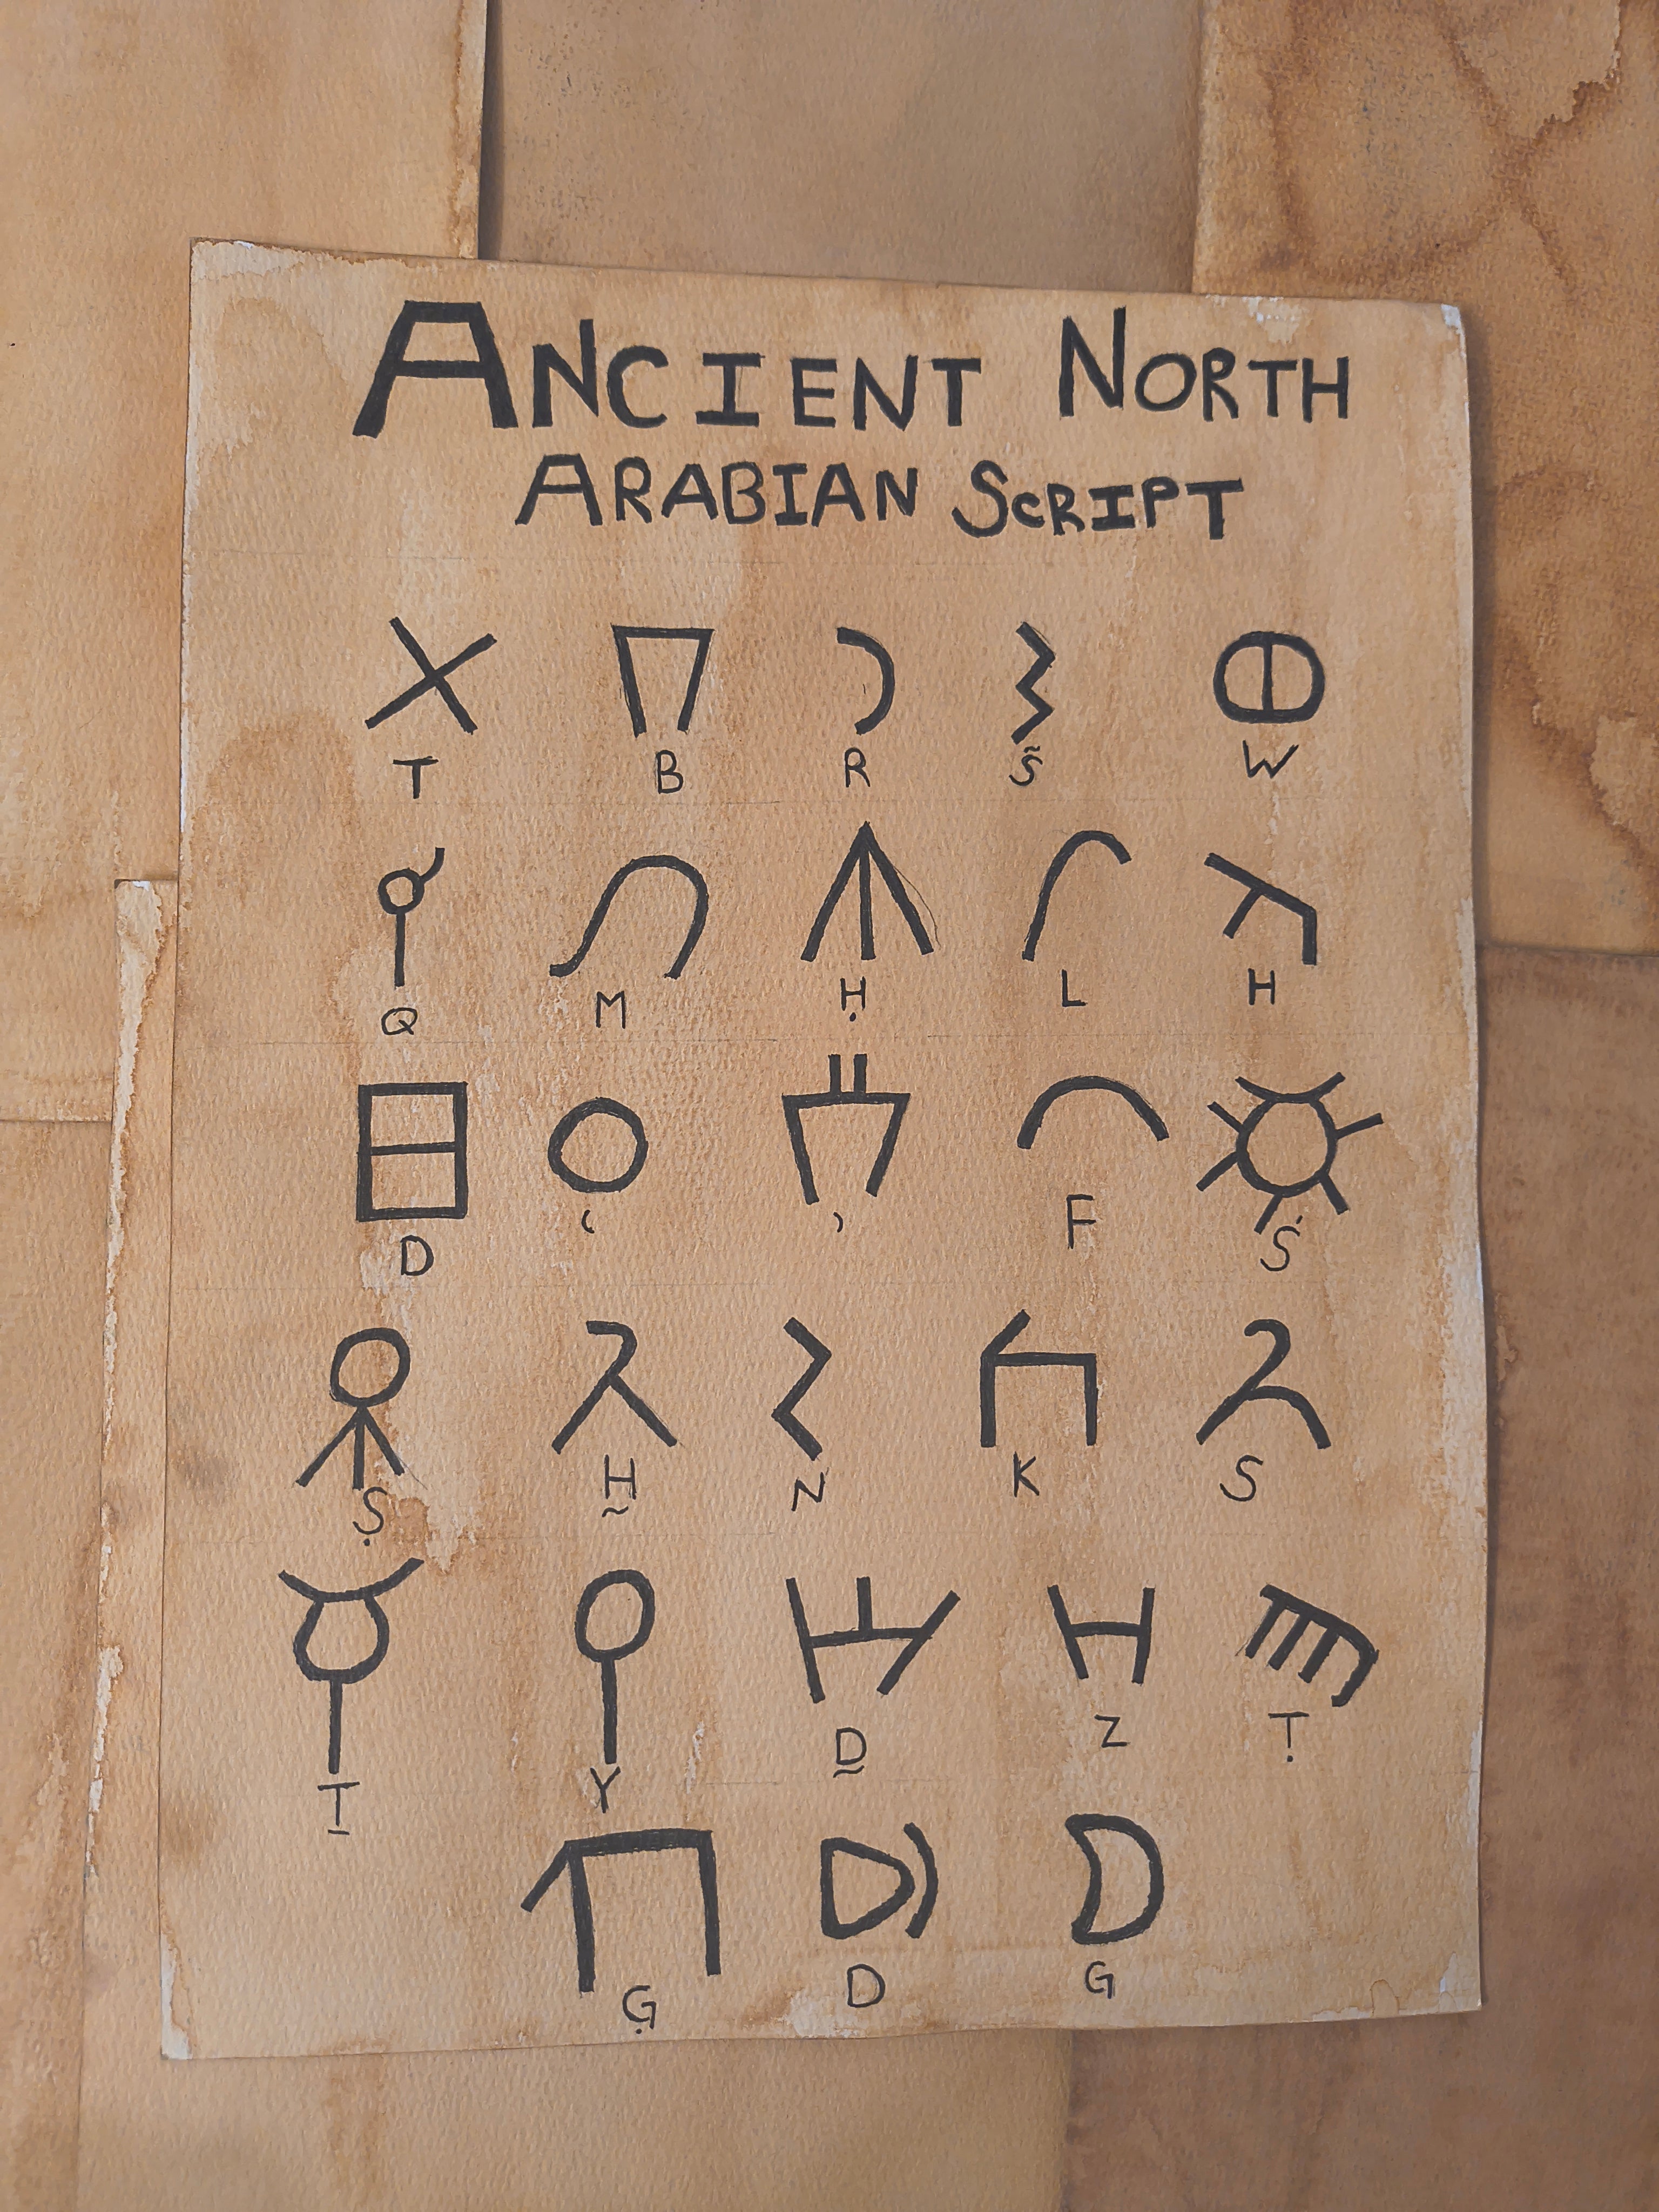 ANCIENT NORTH
ARABIAN SCRIPT
T B R S̃ W
Q M Ḥ L H
D ʿ ʾ F Ś
Ṣ H̰ N K S
T̲ Y D̰ Z Ṭ
G̣ D G